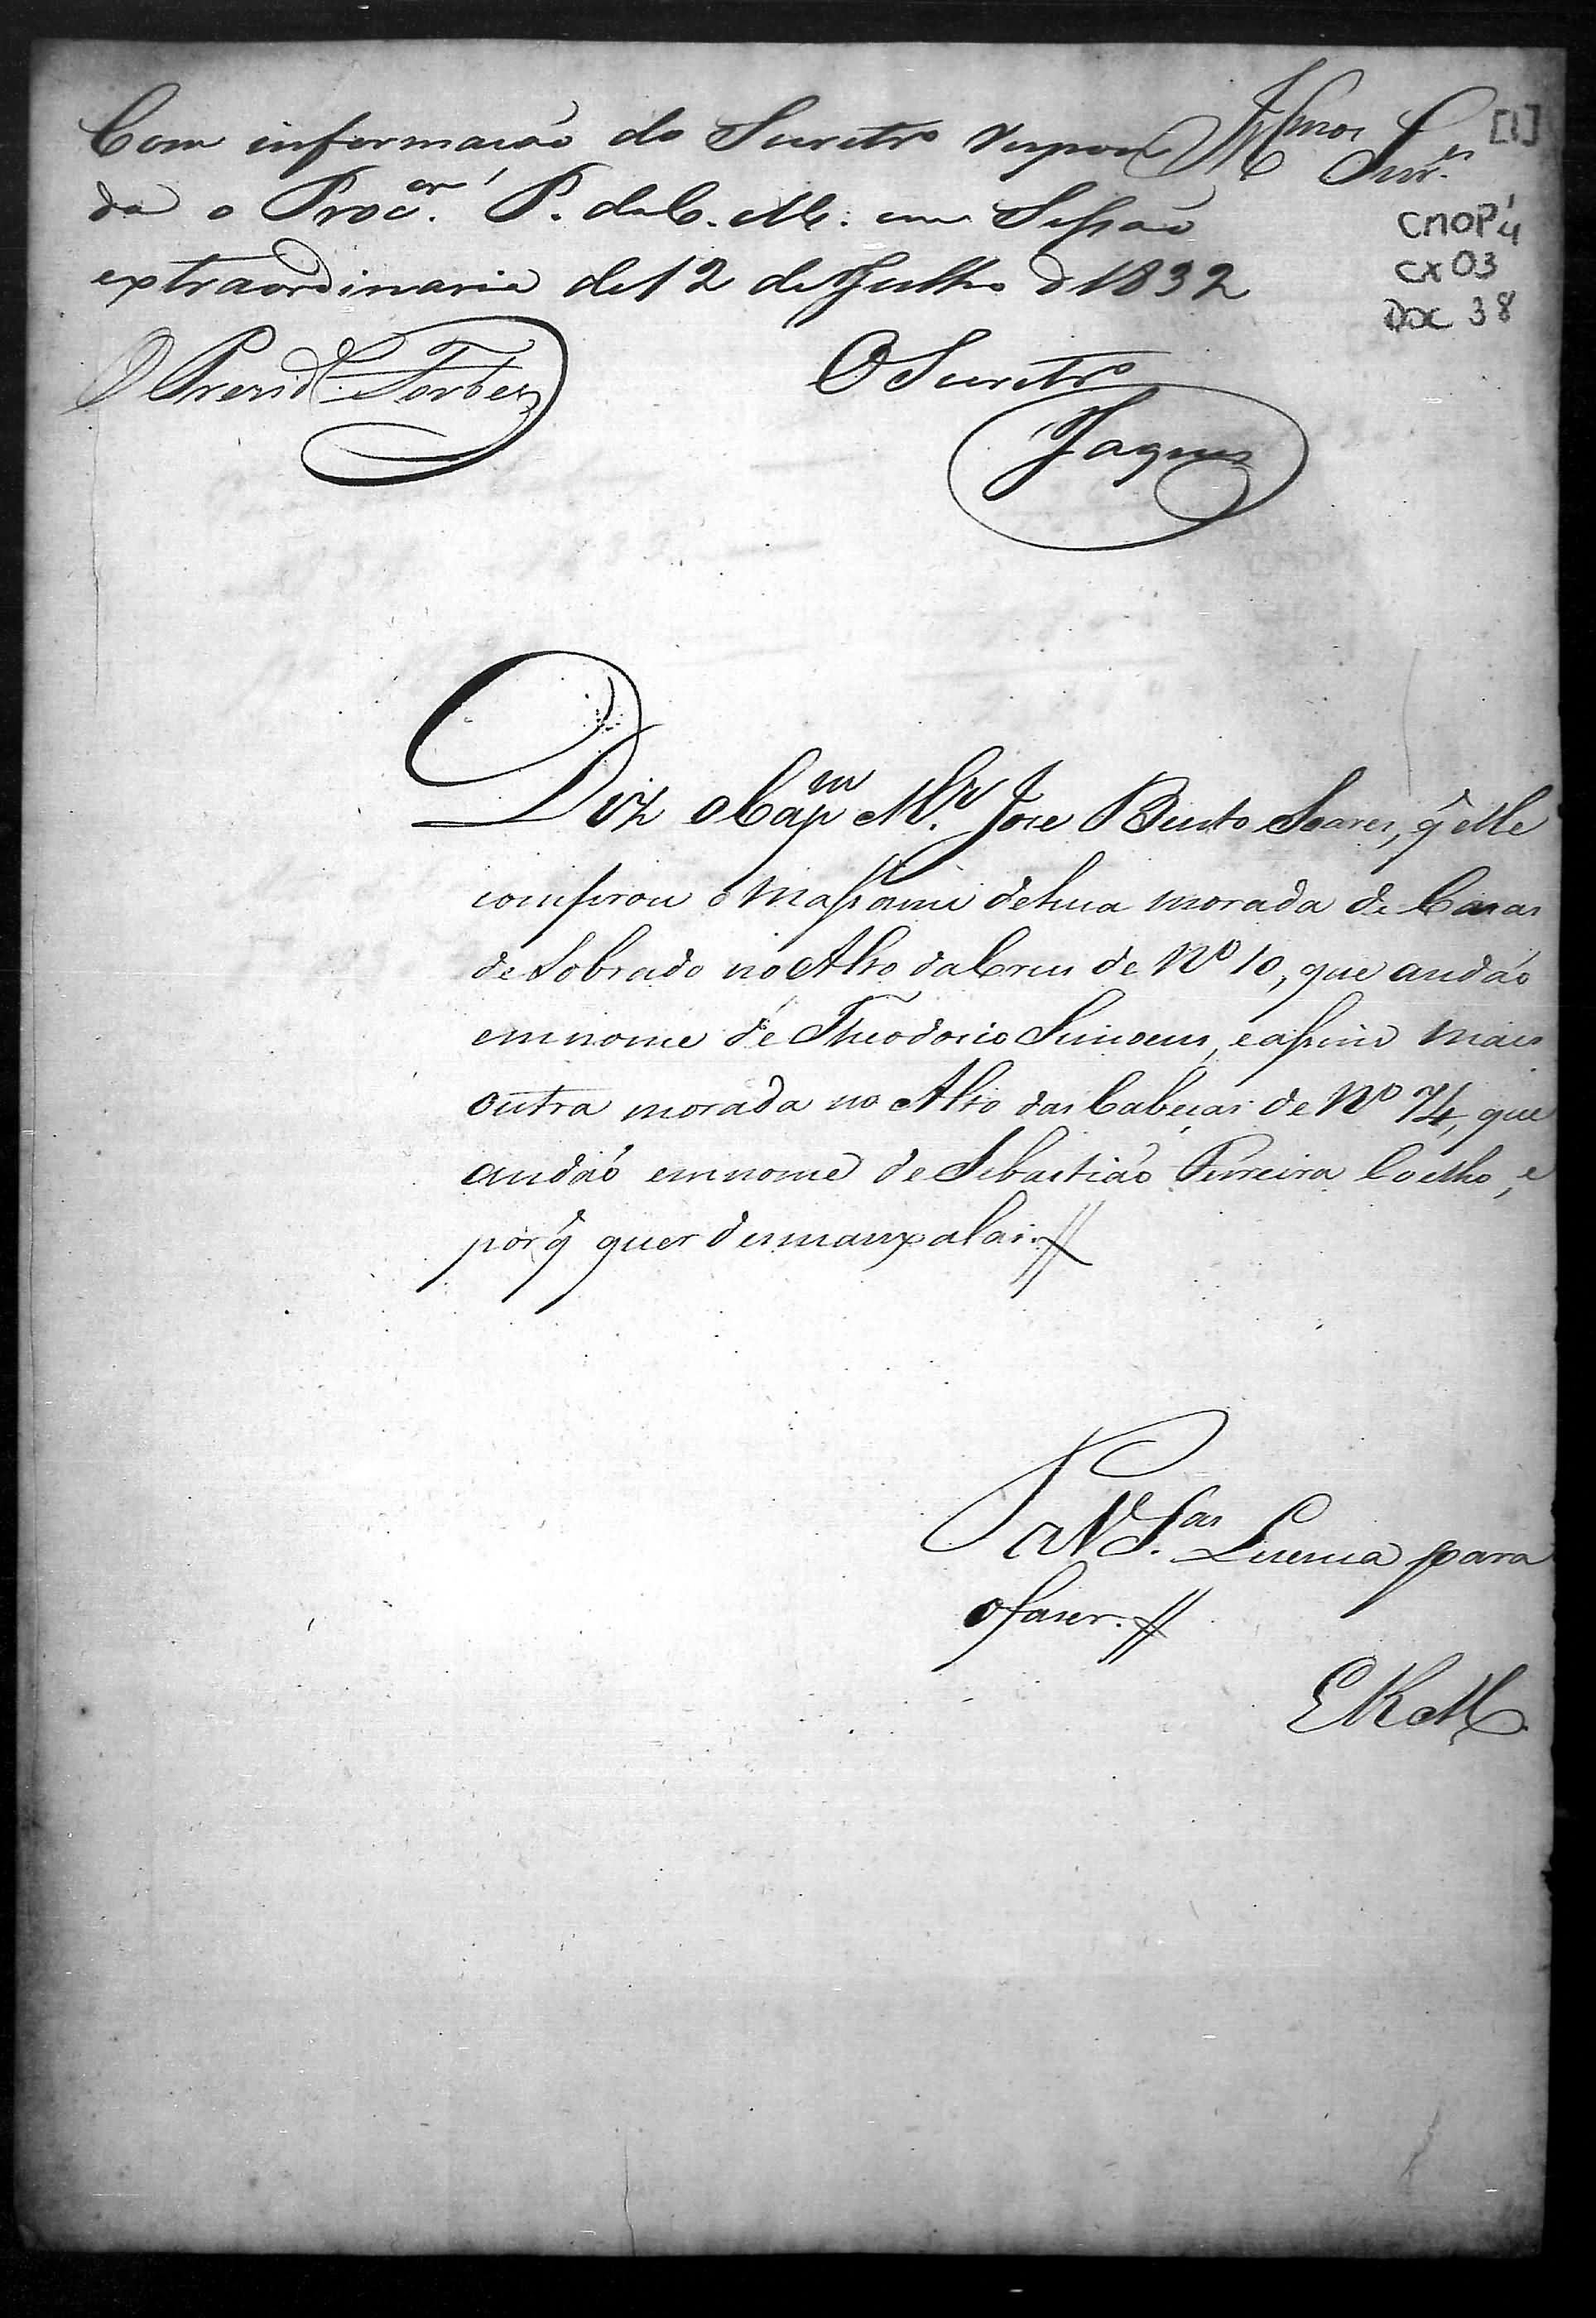 Com informacaó do Secretr.º respon
Illmos Snr.es
[1]
da o Proc.or P. da C. M. em Sessaó
extraordinaria de 12 de Julho d 1832
CMOP'
CX 03
DOC 38
O Prezid.e Torbes
O Secretr.º
Jaques
Diz o Cap.m M.r Jose Bento Soares, q̃ elle
comprou o Massame de hua morada de Casas
de Sobrado no Alto da Crus de Nº 10, que andaó
em nome de Theodozio Simoens, e assim mais
outra morada no Alto das Cabeças de Nº 74, que
andaó em nome de Sebastiaó Ferreira Coelho, e
por q̃ quer desmanxalas.
P. a V S.as Licença para
o faser.
E R M